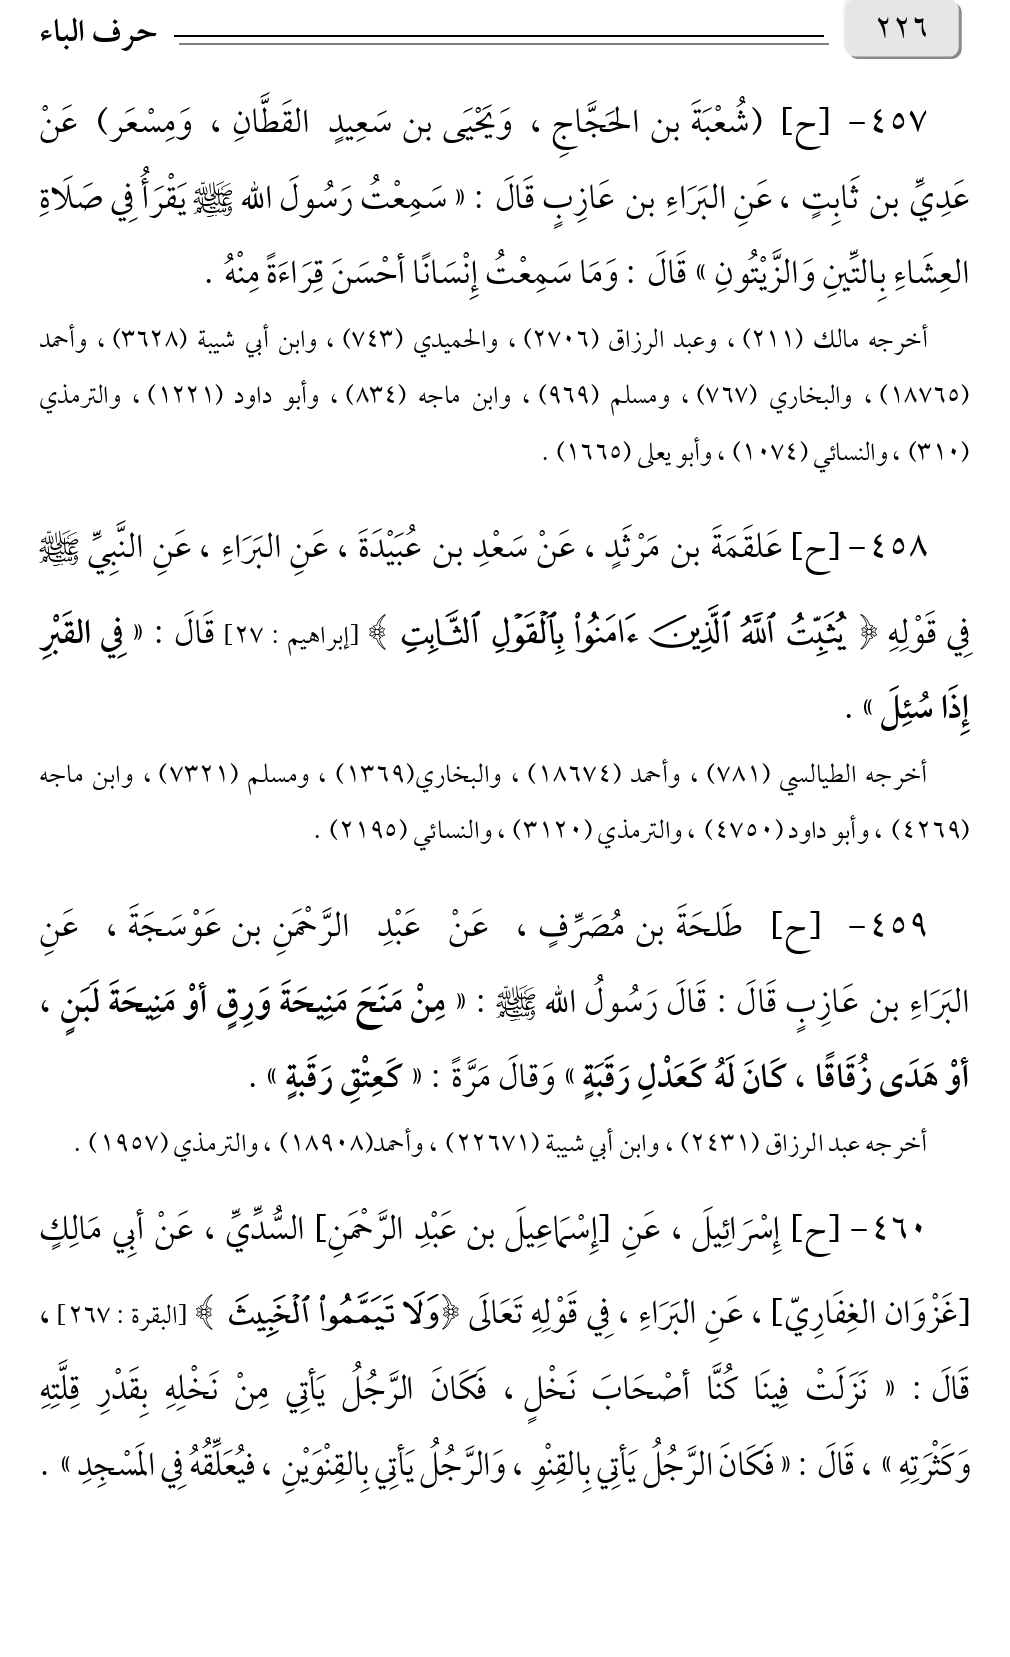 ٢٢٦ حرف الباء
٤٥٧- [ح] (شُعْبَةَ بن الحَجَّاجِ ، وَيَحْيَى بن سَعِيدٍ القَطَّانِ ، وَمِسْعَر) عَنْ
عَدِيِّ بن ثَابِتٍ ، عَنِ البَرَاءِ بن عَازِبٍ قَالَ : « سَمِعْتُ رَسُولَ الله ﷺ يَقْرَأُ فِي صَلَاةِ
العِشَاءِ بِالتِّينِ وَالزَّيْتُونِ » قَالَ : وَمَا سَمِعْتُ إِنْسَانًا أَحْسَنَ قِرَاءَةً مِنْهُ .
أخرجه مالك (٢١١) ، وعبد الرزاق (٢٧٠٦) ، والحميدي (٧٤٣) ، وابن أبي شيبة (٣٦٢٨) ، وأحمد
(١٨٧٦٥) ، والبخاري (٧٦٧) ، ومسلم (٩٦٩) ، وابن ماجه (٨٣٤) ، وأبو داود (١٢٢١) ، والترمذي
(٣١٠) ، والنسائي (١٠٧٤) ، وأبو يعلى (١٦٦٥) .
٤٥٨- [ح] عَلقَمَةَ بن مَرْثَدٍ ، عَنْ سَعْدِ بن عُبَيْدَةَ ، عَنِ البَرَاءِ ، عَنِ النَّبِيِّ ﷺ
فِي قَوْلِهِ ﴿ يُثَبِّتُ ٱللَّهُ ٱلَّذِينَ ءَامَنُوا۟ بِٱلْقَوْلِ ٱلثَّابِتِ ﴾ [إبراهيم : ٢٧] قَالَ : « فِي القَبْرِ
إِذَا سُئِلَ » .
أخرجه الطيالسي (٧٨١) ، وأحمد (١٨٦٧٤) ، والبخاري(١٣٦٩) ، ومسلم (٧٣٢١) ، وابن ماجه
(٤٢٦٩) ، وأبو داود (٤٧٥٠) ، والترمذي (٣١٢٠) ، والنسائي (٢١٩٥) .
٤٥٩- [ح] طَلحَةَ بن مُصَرِّفٍ ، عَنْ عَبْدِ الرَّحْمَنِ بن عَوْسَجَةَ ، عَنِ
البَرَاءِ بن عَازِبٍ قَالَ : قَالَ رَسُولُ الله ﷺ : « مِنْ مَنَحَ مَنِيحَةَ وَرِقٍ أوْ مَنِيحَةَ لَبَنٍ ،
أوْ هَدَى زُقَاقًا ، كَانَ لَهُ كَعَدْلِ رَقَبَةٍ » وَقالَ مَرَّةً : « كَعِتْقِ رَقَبةٍ » .
أخرجه عبد الرزاق (٢٤٣١) ، وابن أبي شيبة (٢٢٦٧١) ، وأحمد(١٨٩٠٨) ، والترمذي (١٩٥٧) .
٤٦٠- [ح] إِسْرَائِيلَ ، عَنِ [إِسْمَاعِيلَ بن عَبْدِ الرَّحْمَنِ] السُّدِّيِّ ، عَنْ أبِي مَالِكٍ
[غَزْوَان الغِفَارِيّ] ، عَنِ البَرَاءِ ، فِي قَوْلِهِ تَعَالَى ﴿وَلَا تَيَمَّمُوا۟ ٱلْخَبِيثَ ﴾ [البقرة : ٢٦٧] ،
قَالَ : « نَزَلَتْ فِينَا كُنَّا أصْحَابَ نَخْلٍ ، فَكَانَ الرَّجُلُ يَأتِي مِنْ نَخْلِهِ بِقَدْرِ قِلَّتِهِ
وَكَثْرَتِهِ » ، قَالَ : « فَكَانَ الرَّجُلُ يَأتِي بِالقِنْوِ ، وَالرَّجُلُ يَأتِي بِالقِنْوَيْنِ ، فيُعَلِّقُهُ فِي المَسْجِدِ » .